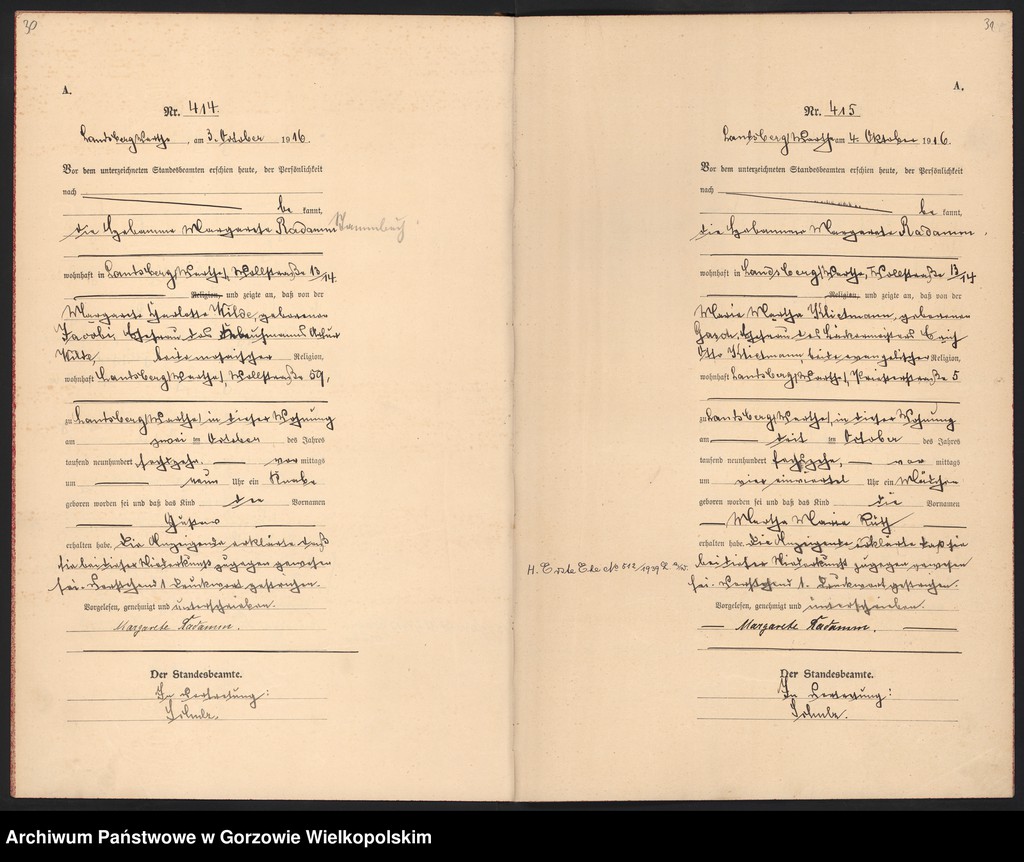 30
A.
Nr. 414.
Landsberg Warthe, am 3. October 1916.
Vor dem unterzeichneten Standesbeamten erschien heute, der Persönlichkeit
nach
be kannt,
die Hebamme Margarete Radamm Stammbuch
wohnhaft in Landsberg/Warthe/, Wollstraße 13/14
Religion, und zeigte an, daß von der
Margarete Charlotte Wilde, geborenen
Jacobi, Ehefrau des Arthur
Wilde, beide mosaischer Religion,
wohnhaft Landsberg/Warthe/, Wollstraße 59,
zu Landsberg/Warthe/ in dieser Wohnung
am zwei ten October des Jahres
tausend neunhundert sechszehn. vor mittags
um neun Uhr ein Knabe
geboren worden sei und daß das Kind den Vornamen
Gustav
erhalten habe. Die Anzeigende erklärte daß
sie bei dieser Niederkunft zugegen gewesen
sei. Vorstehend 1 Druckwort gestrichen.
Vorgelesen, genehmigt und unterschrieben.
Margarete Radamm.
Der Standesbeamte.
In Vertretung:
31
A.
Nr. 415
Landsberg/Warthe am 4. Oktober 1916.
Vor dem unterzeichneten Standesbeamten erschien heute, der Persönlichkeit
nach
be kannt,
die Hebamme Margarete Radamm.
wohnhaft in Landsberg/Warthe, Wollstraße 13/14
Religion, und zeigte an, daß von der
Marie Martha Klietmann, geborenen
Ehefrau des Bäckermeisters Erich
Otto Klietmann, beide evangelischer Religion,
wohnhaft Landsberg/Warthe/, Priesterstraße 5
zu Landsberg/Warthe/, in dieser Wohnung
am drit ten October des Jahres
tausend neunhundert sechszehn, vor mittags
um vier einviertel Uhr ein Mädchen
geboren worden sei und daß das Kind die Vornamen
Martha Marie Ruth
erhalten habe. Die Anzeigende erklärte daß sie
bei dieser Niederkunft zugegen gewesen
sei. Vorstehend 1. Druckwort gestrichen.
H. Erste Ehe No 512/1939
Vorgelesen, genehmigt und unterschrieben.
Margarete Radamm.
Der Standesbeamte.
In Vertretung:
Archiwum Państwowe w Gorzowie Wielkopolskim